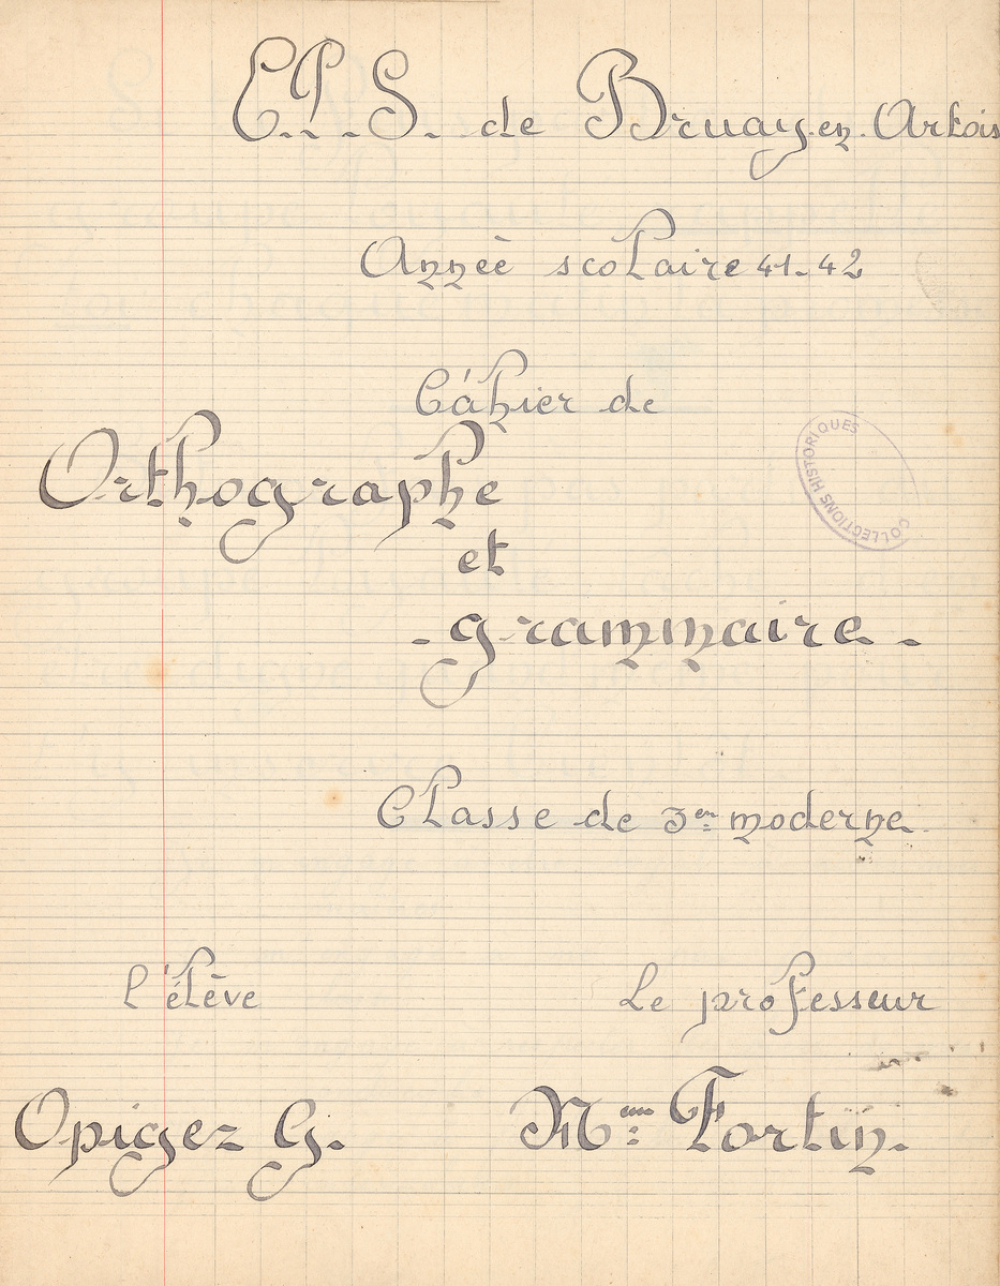 E.P.S. de Bruay.en.Artois
Annèè scolaire 41-42
Cáhier de
Orthographe
COLLECTIONS HISTORIQUES
et
- grammaire -
Classe de 3em moderne
l'élève
Le professeur
Opigez G.
Mme Fortin.